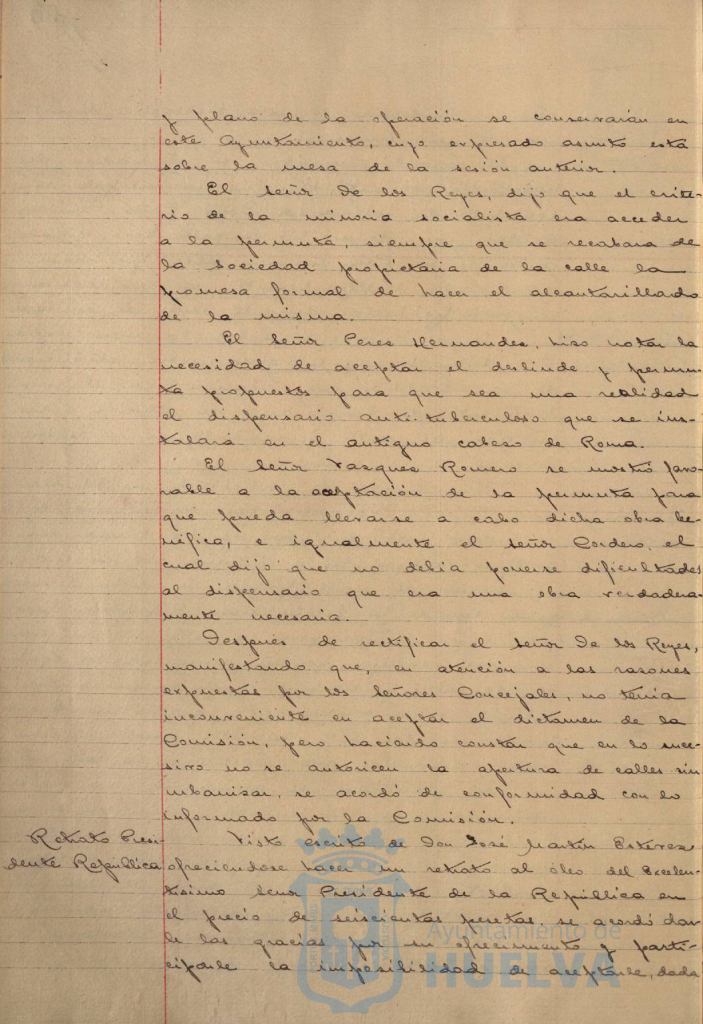 y plano de la operación se conservarán en
este Ayuntamiento, cuyo expresado asunto está
sobre la mesa de la sesión anterior.
El Señor De los Reyes, dijo que el crite-
rio de la minoria socialista era acceder
a la permuta, siempre que se recabara de
la Sociedad propietaria de la calle la
promesa formal de hacer el alcantarillado
de la misma.
El Señor Perez Hernandez, hizo notar la
necesidad de aceptar el deslinde y permu-
ta propuestos para que sea una realidad
el dispensario anti-tuberculoso que se ins-
talará en el antiguo cabezo de Roma.
El Señor Vazquez Romero se mostró favo-
rable a la aceptación de la permuta para
que pueda llevarse a cabo dicha obra be-
néfica, e igualmente el señor Cordero, el
cual dijo que no debia ponerse dificultades
al dispensario que era una obra verdadera-
mente necesaria.
Después de rectificar el Señor De los Reyes,
manifestando que, en atención a las razones
expuestas por los Señores Concejales, no tenia
inconveniente en aceptar el dictamen de la
Comisión, pero haciendo constar que en lo suce-
sivo no se autoricen la apertura de calles sin
urbanizar, se acordó de conformidad con lo
informado por la Comisión.
Retrato Presi-
dente República
Visto escrito de Don José Martín Estévez
ofreciendose hacer un retrato al óleo del Excelen-
tísimo Señor Presidente de la República en
el precio de seiscientas pesetas, se acordó dar-
le las gracias por su ofrecimiento y parti-
ciparle la imposibilidad de aceptarle, dada
Ayuntamiento de
HUELVA